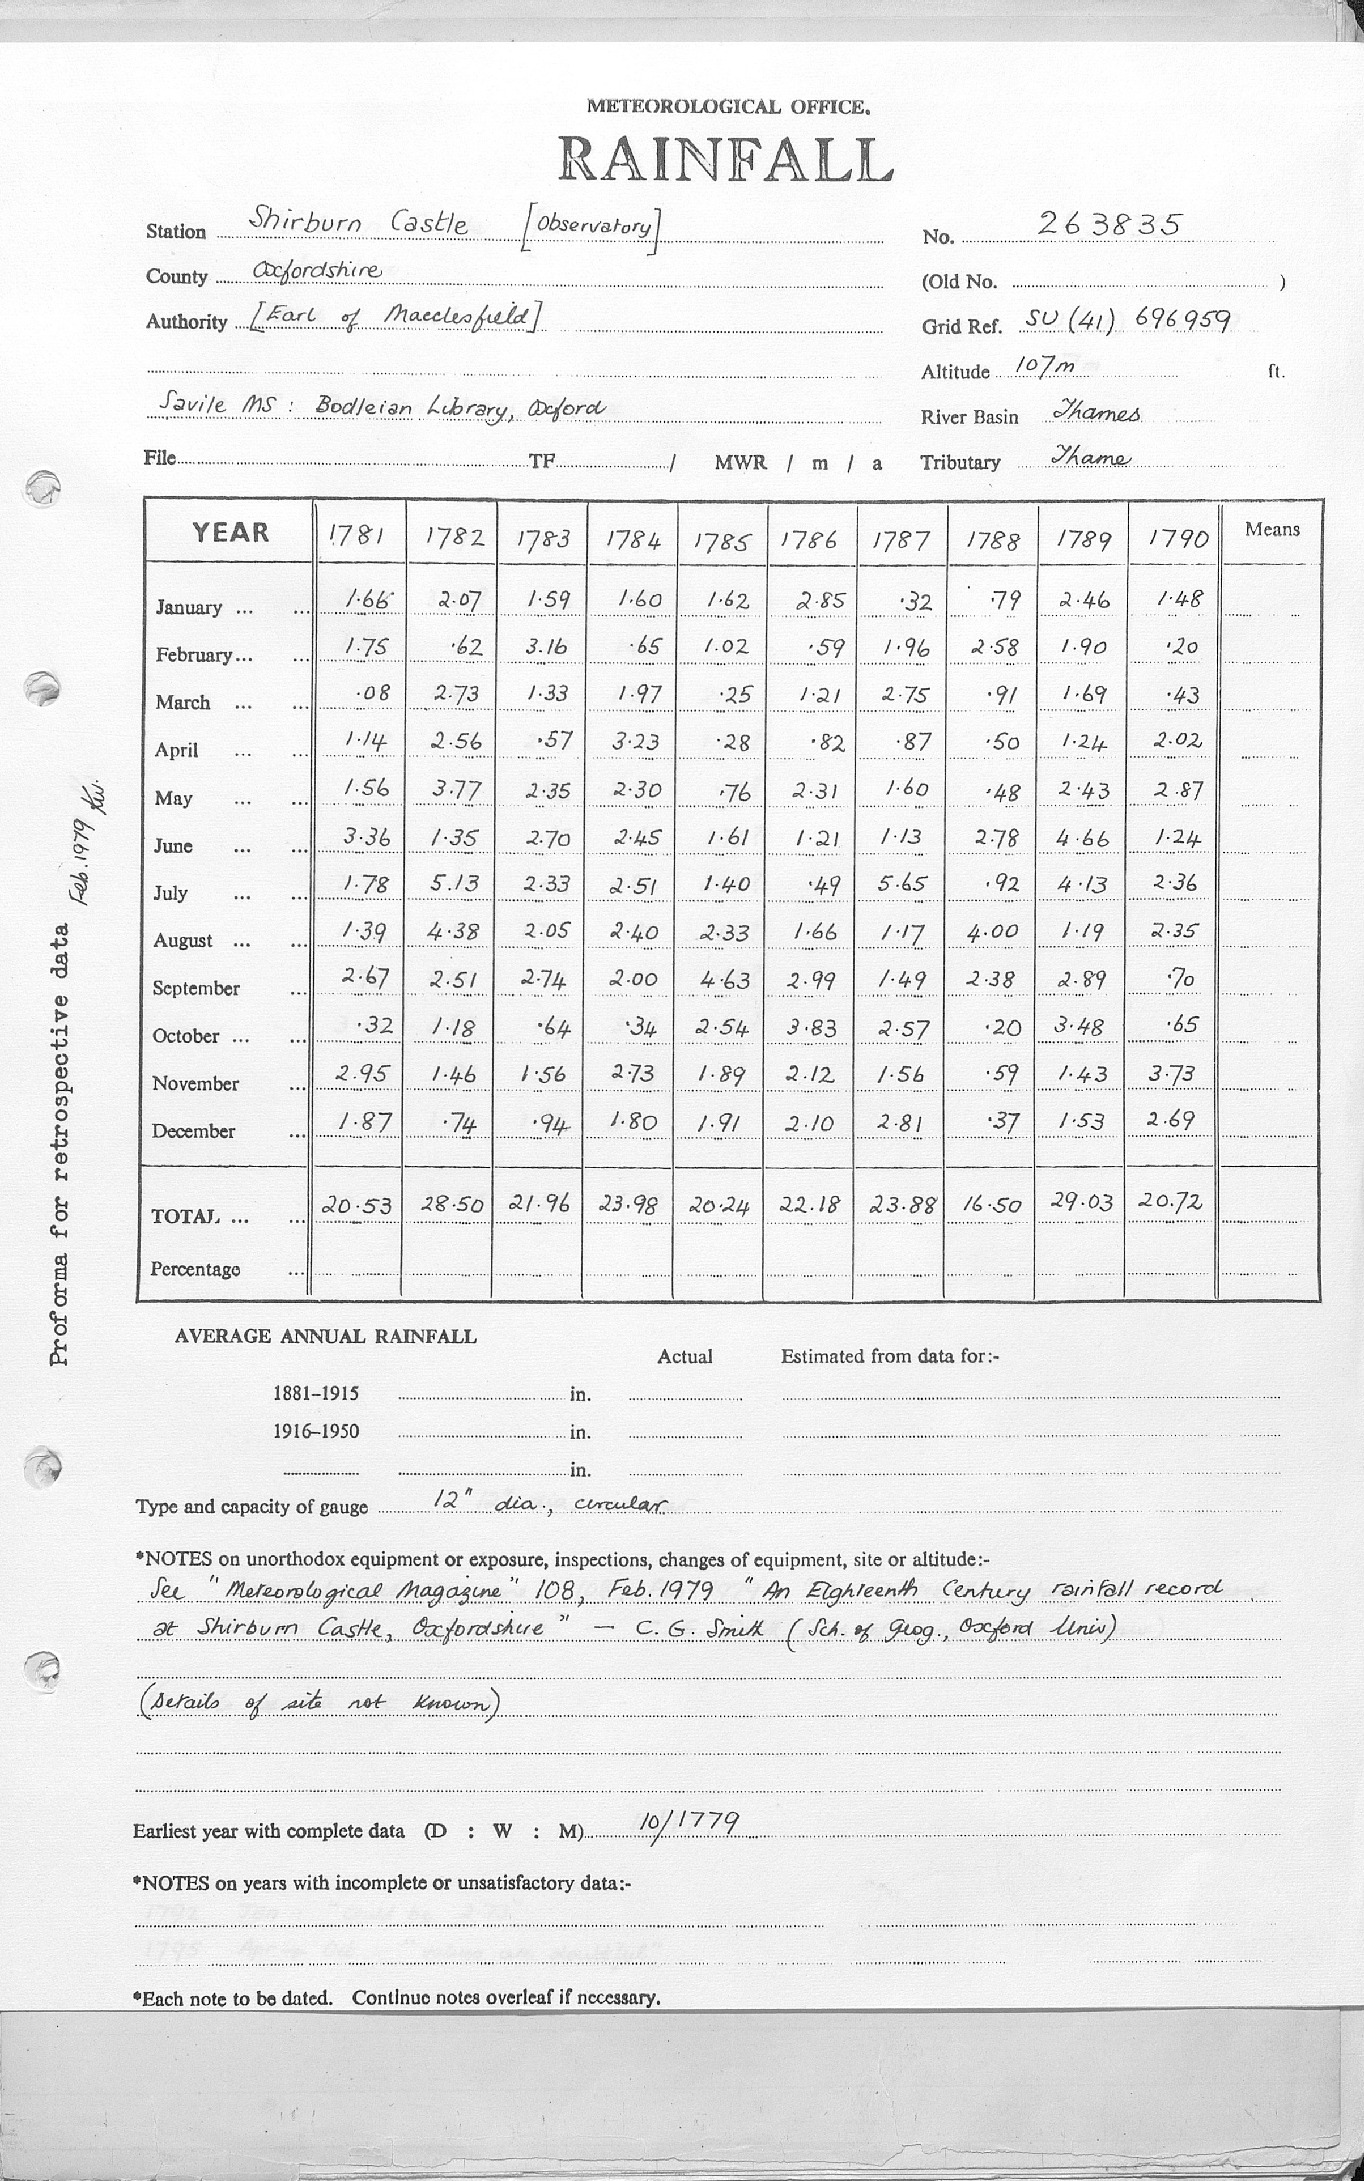 METEOROLOGICAL OFFICE.
RAINFALL
Station Shirburn Castle [Observatory] No. 263835
County Oxfordshire (Old No. )
Authority [Earl of Macclesfield] Grid Ref. SU (41) 696959
Altitude 107m ft.
Savile MS : Bodleian Library, Oxford River Basin Thames
File TF / MWR / m / a Tributary Thame
YEAR 1781 1782 1783 1784 1785 1786 1787 1788 1789 1790 Means
January ... ... 1.66 2.07 1.59 1.60 1.62 2.85 .32 .79 2.46 1.48
February ... ... 1.75 .62 3.16 .65 1.02 .59 1.96 2.58 1.90 .20
March ... ... .08 2.73 1.33 1.97 .25 1.21 2.75 .91 1.69 .43
April ... ... 1.14 2.56 .57 3.23 .28 .82 .87 .50 1.24 2.02
May ... ... 1.56 3.77 2.35 2.30 .76 2.31 1.60 .48 2.43 2.87
June ... ... 3.36 1.35 2.70 2.45 1.61 1.21 1.13 2.78 4.66 1.24
July ... ... 1.78 5.13 2.33 2.51 1.40 .49 5.65 .92 4.13 2.36
August ... ... 1.39 4.38 2.05 2.40 2.33 1.66 1.17 4.00 1.19 2.35
September ... 2.67 2.51 2.74 2.00 4.63 2.99 1.49 2.38 2.89 .70
October ... ... .32 1.18 .64 .34 2.54 3.83 2.57 .20 3.48 .65
November ... 2.95 1.46 1.56 2.73 1.89 2.12 1.56 .59 1.43 3.73
December ... 1.87 .74 .94 1.80 1.91 2.10 2.81 .37 1.53 2.69
TOTAL ... ... 20.53 28.50 21.96 23.98 20.24 22.18 23.88 16.50 29.03 20.72
Percentage ...
Proforma for retrospective data Feb. 1979 KW.
AVERAGE ANNUAL RAINFALL
Actual Estimated from data for:-
1881–1915 in.
1916–1950 in.
in.
Type and capacity of gauge 12" dia., circular
*NOTES on unorthodox equipment or exposure, inspections, changes of equipment, site or altitude:-
See "Meteorological Magazine" 108, Feb. 1979 "An Eighteenth Century rainfall record
at Shirburn Castle, Oxfordshire" — C. G. Smith (Sch. of Geog., Oxford Univ)
(Details of site not known)
Earliest year with complete data (D : W : M) 10/1779
*NOTES on years with incomplete or unsatisfactory data:-
*Each note to be dated. Continue notes overleaf if necessary.